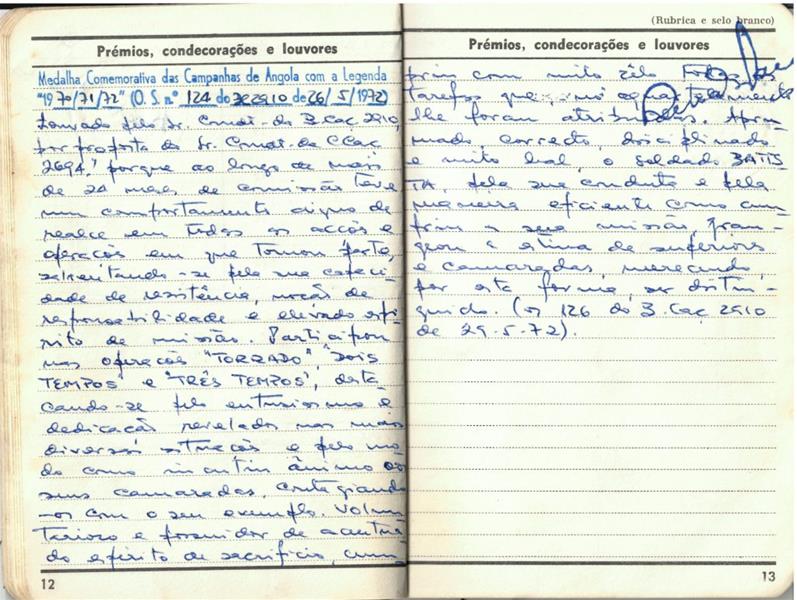 Prémios, condecorações e louvores
Medalha Comemorativa das Campanhas de Angola com a Legenda
"1970/71/72" (O. S. nº 124 do BC2910 de 26/5/1972)
Louvado pelo Sr. Cmdt. do B. Caç 2910,
por proposta do Sr. Cmdt. da CCaç
2694, porque ao longo de mais
de 24 meses de comissão teve
um comportamento digno de
realce em todos os accões e
operações em que tomou parte,
salientando-se pela sua capaci-
dade de resistência, noção de
responsabilidade e elevado espí-
rito de missão. Participou
nas operações "TORRADO", "DOIS
TEMPOS" e "TRÊS TEMPOS", desta
cando-se pelo entusiasmo e
dedicação revelados nas mais
diversas situações e pelo mo-
do como incutiu ânimo aos
seus camaradas, contagiando
-os com o seu exemplo. Volun
tarioso e possuidor de acentua
do espírito de sacrifício, cum
12
(Rubrica e selo branco)
Prémios, condecorações e louvores
priu com muito zêlo todas as
tarefas que, no aquartelamento
lhe foram atribuídas. Apru-
mado, correcto, disciplinado
e muito leal, o soldado BATIS
TA, pela sua conduta e pela
maneira eficiente como cum
priu a sua missão, gran-
geou a estima de superiores
e camaradas, merecendo,
por esta forma, ser distin-
guido. (OS 126 do B. Caç 2910
de 29-5-72).
13